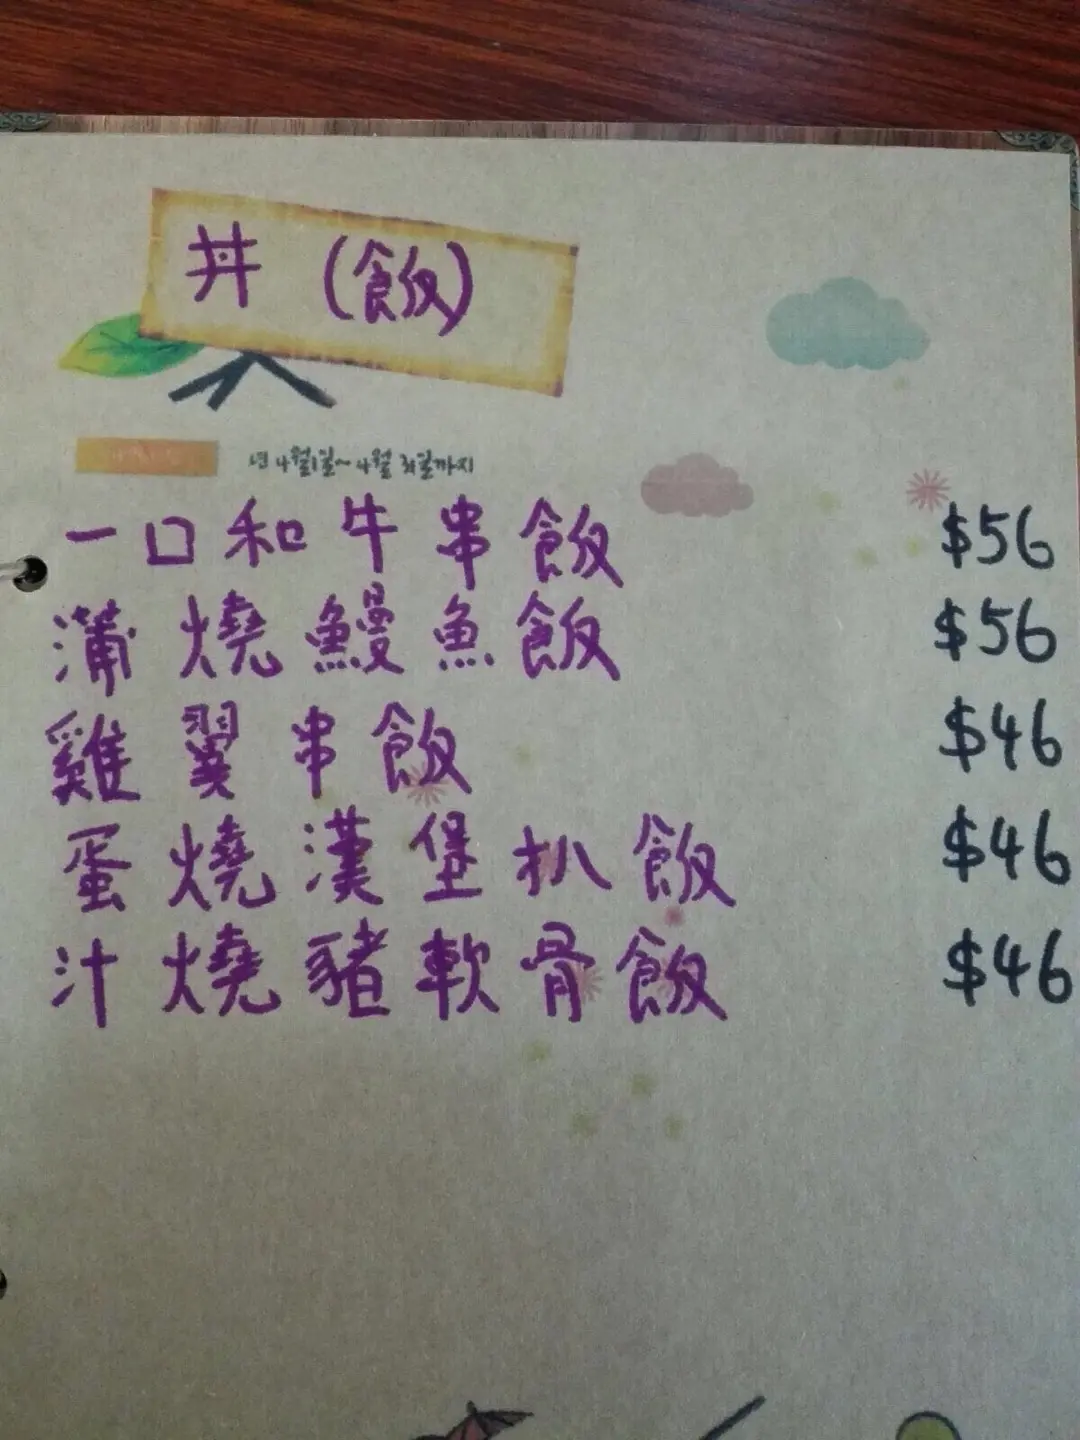 丼 (飯)
년 4월1일~4월 31일까지
一口和牛串飯 $56
蒲燒鰻魚飯 $56
雞翼串飯 $46
蛋燒漢堡扒飯 $46
汁燒豬軟骨飯 $46